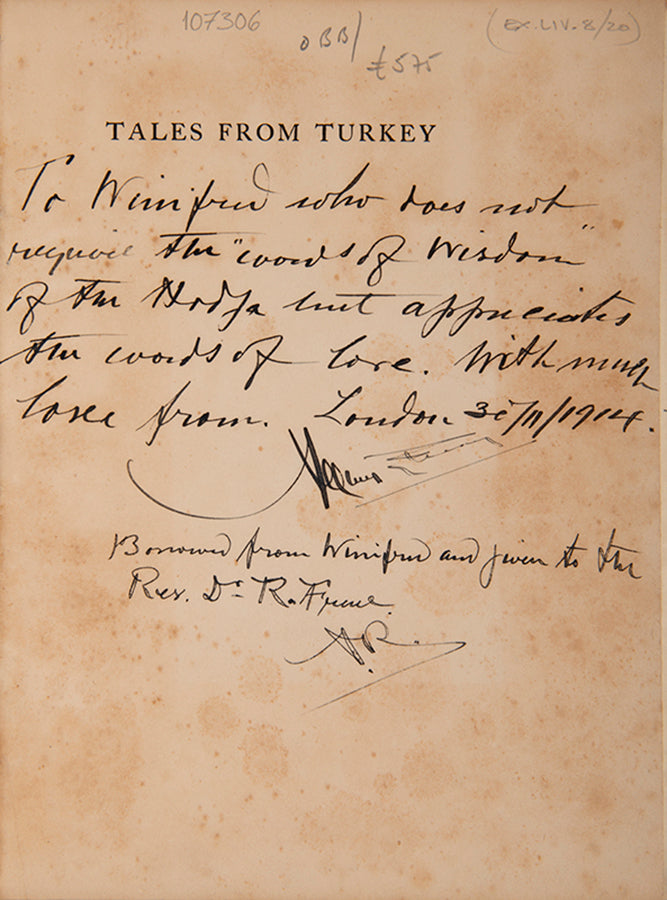 107306
OBB/
£575
(EX.LIV.8/20)
TALES FROM TURKEY
To Winifred who does not
require the "words of Wisdom"
of the Hodja but appreciates
the words of love. With much
love from. London 30/11/1914.
Borrowed from Winifred and given to the
Rev. Dr. R. Frew.
A.R.